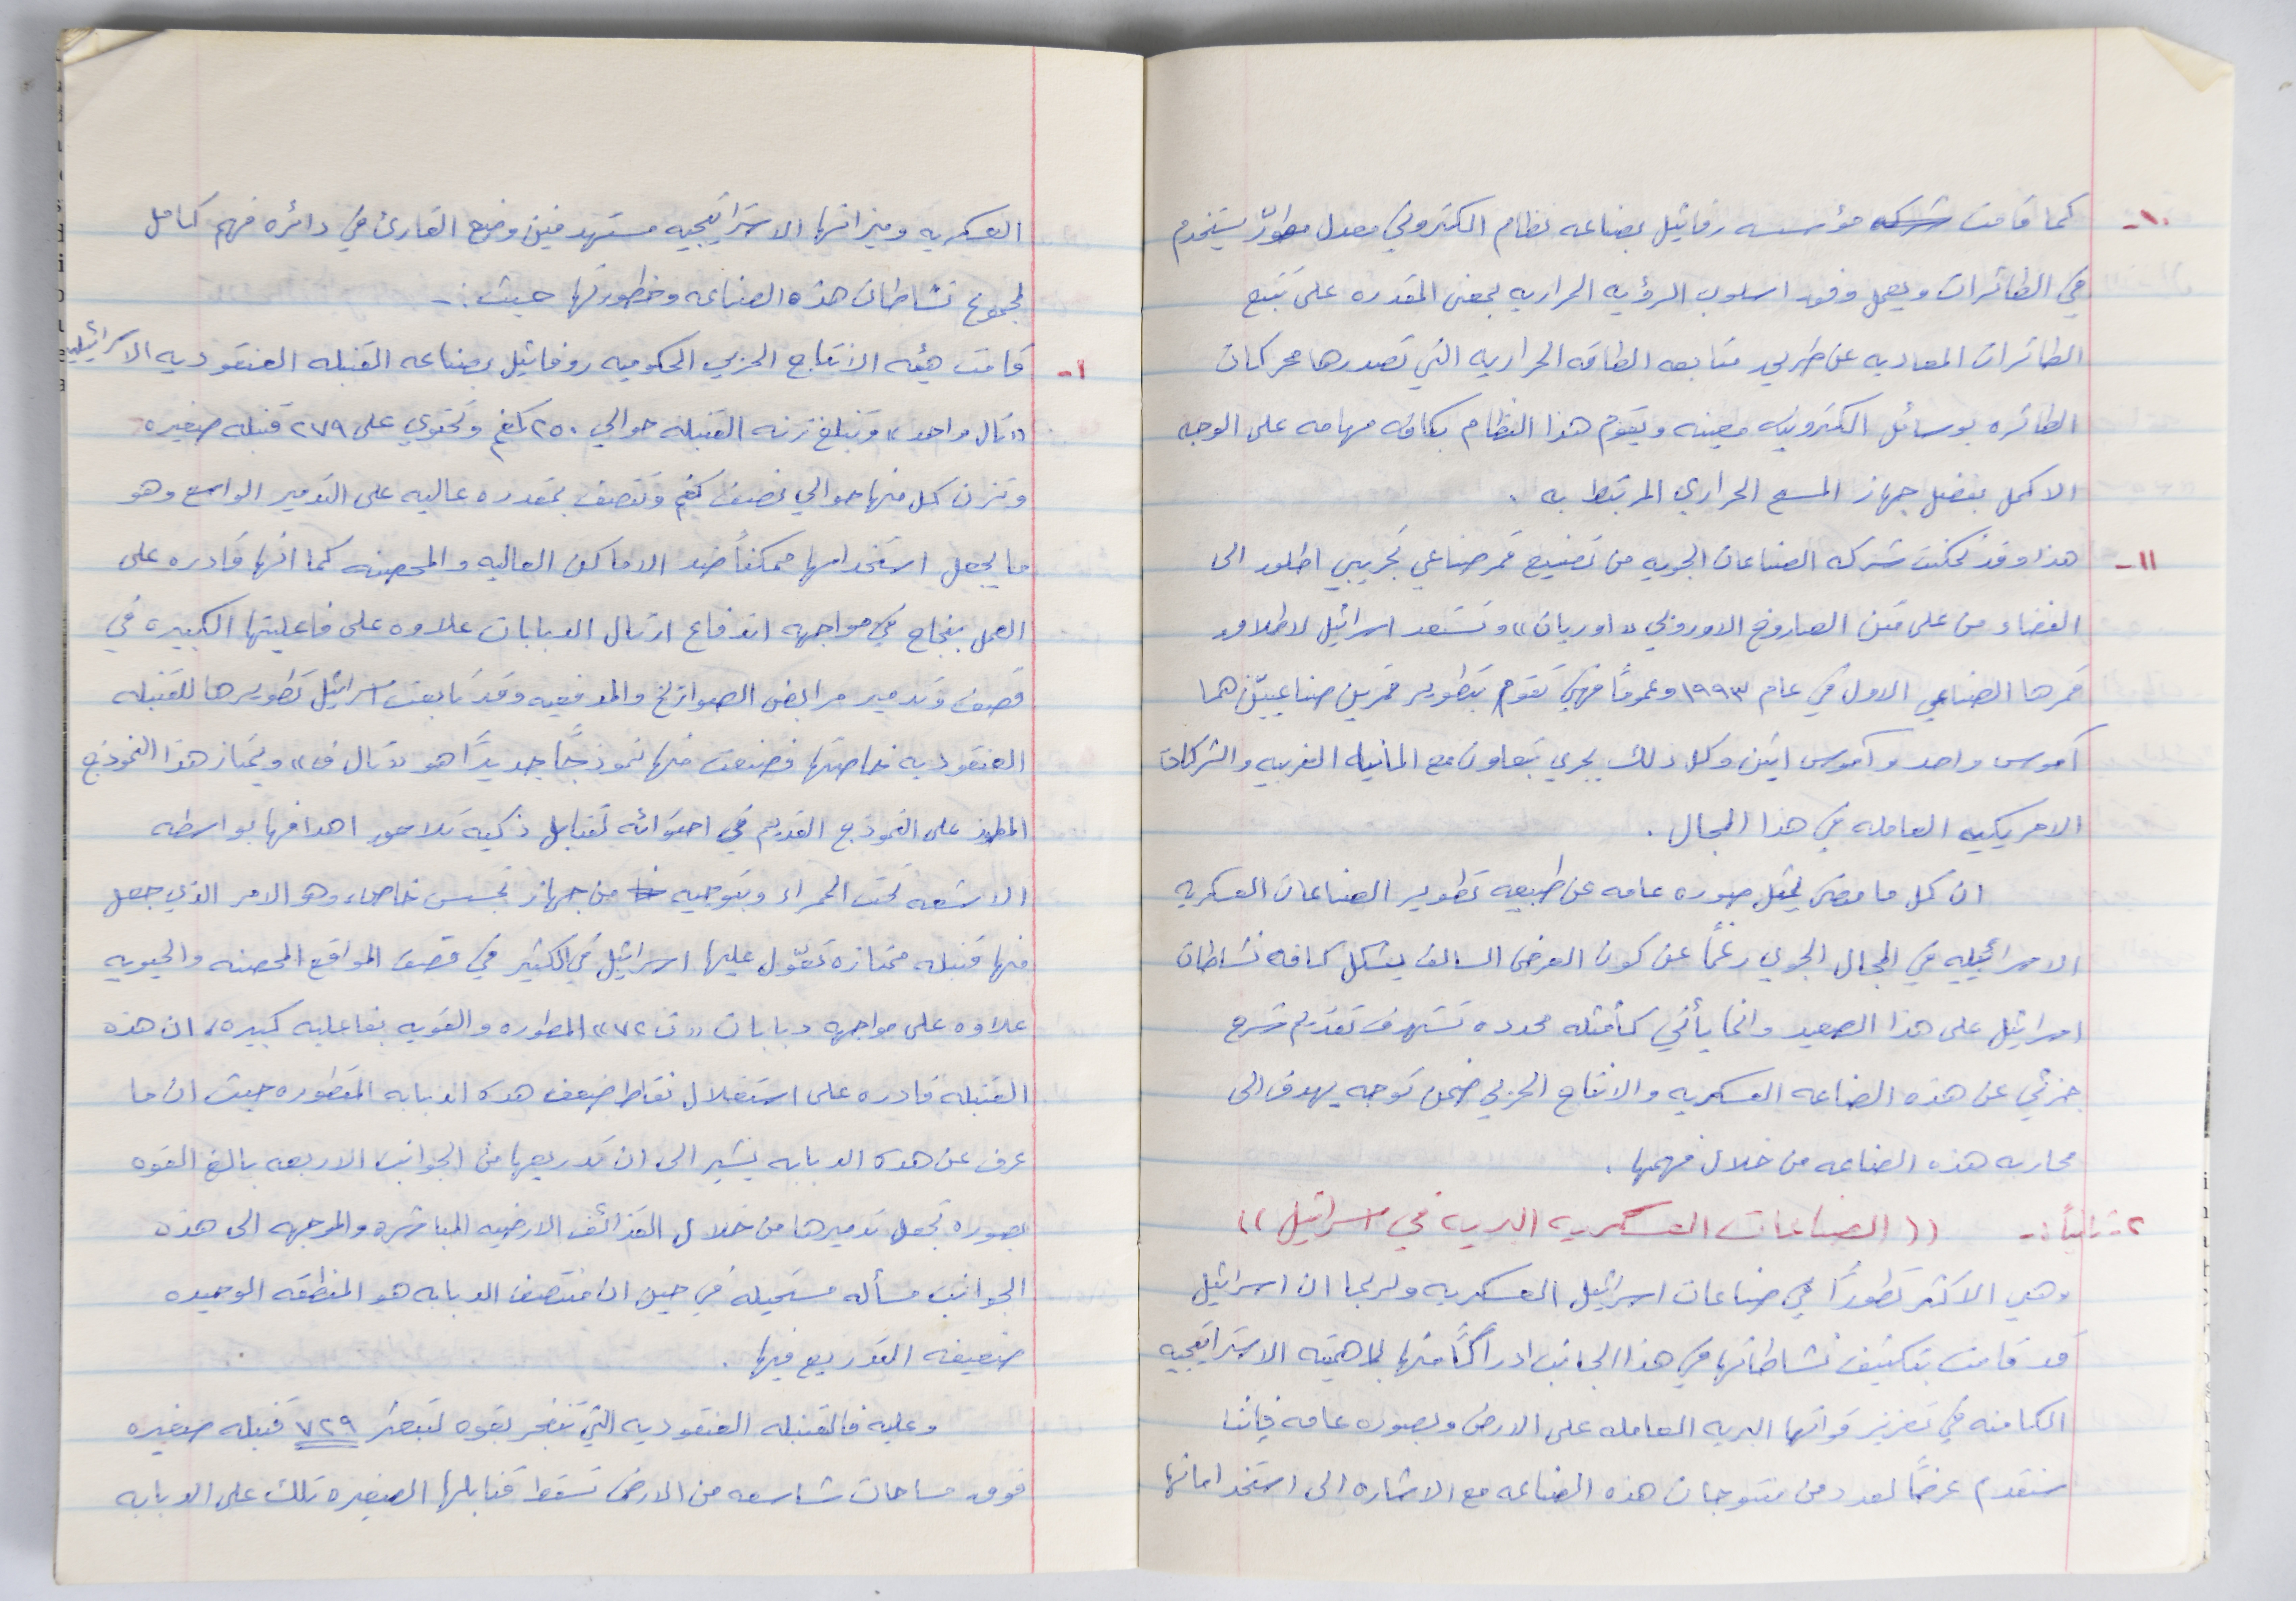 ١٠- كما قامت شركه مؤسسه رفائيل بصناعه نظام الكتروني معدل مطوّر يستخدم
في الطائرات ويعمل وفق اسلوب الرؤيه الحراريه بمعنى المقدره على تتبع
الطائرات المعاديه عن طريق متابعه الطاقه الحراريه التي تصدرها محركات
الطائره بوسائل الكترونيه معينه ويقوم هذا النظام بكافه مهامه على الوجه
الاكمل بفضل جهاز المسح الحراري المرتبط به .
١١- هذا وقد تمكنت شركه الصناعات الجويه من تصنيع قمر صناعي تجريبي اطلق الى
الفضاء من على متن الصاروخ الاوروبي «اوريان» وتستعد اسرائيل لاطلاق
قمرها الصناعي الاول في عام ١٩٩٣ وعموماً فهي تقوم بتطوير قمرين صناعيين هما
آموس واحد وآموس اثنين وكل ذلك يجري بتعاون مع المانيا الغربيه والشركات
الامريكيه العامله في هذا المجال .
ان كل ما مضى يمثل صوره عامه عن طبيعه تطوير الصناعات العسكريه
الاسرائيليه في المجال الجوي رغماً عن كون العرض السالف يشكل كافه نشاطات
اسرائيل على هذا الصعيد وانما يأتي كأمثله محدده تستهدف تقديم شرح
جزئي عن هذه الصناعه العسكريه والانتاج الحربي ضمن توجه يهدف الى
محاربه هذه الصناعه من خلال فهمها .
٢- ثانياً :- (( الصناعات العسكريه البريه في اسرائيل ))
وهي الاكثر تطوراً في صناعات اسرائيل العسكريه ولربما ان اسرائيل
قد قامت بتكثيف نشاطاتها في هذا الجانب ادراكاً منها لماهميته الاستراتيجيه
الكامنه في تعزيز قواتها البريه العامله على الارض وبصوره عامه فإننا
سنقدم عرضاً لعدد من منتوجات هذه الصناعه مع الاشاره الى استخداماتها
العسكريه وميزاتها الاستراتيجيه مستهدفين وضع القارئ في دائره فهم كامل
لمجموع نشاطات هذه الصناعه وخطورتها حيث :-
١- قامت هيئه الانتاج الحربي الحكوميه روفائيل بصناعه القنبله العنقوديه الاسرائيليه
«تال واحد» وتبلغ زنه القنبله حوالي ٢٥٠ كغم وتحتوي على ٢٧٩ قنبله صغيره
وتزن كل منها حوالي نصف كغم وتتصف بمقدره عاليه على التدمير الواسع وهو
ما يجعل استخدامها ممكناً ضد الاماكن العاليه والمحصنه كما انها قادره على
العمل بنجاح في مواجهه اندفاع ارتال الدبابات علاوه على فاعليتها الكبيره في
قصف وتدمير مرابض الصواريخ والمدفعيه وقد تابعت اسرائيل تطويرها للقنبله
العنقوديه خاصتها فصنعت منها نموذجاً جديداً هو «تال ف» ويمتاز هذا النموذج
المطور على النموذج القديم في احتوائه لقنابل ذكيه تلاحق اهدافها بواسطه
الاشعه تحت الحمراء وبتوجيه من جهاز تجسس خاص، وهو الامر الذي جعل
منها قنبله ممتازه تعوّل عليها اسرائيل في الكثير في قصف المواقع المحصنه والحيويه
علاوه على مواجهه دبابات «ت ٧٢» المطوره والقويه بفاعليه كبيره، ان هذه
القنبله قادره على استغلال نقاط ضعف هذه الدبابه المتطوره حيث ان ما
عرف عن هذه الدبابه يشير الى ان تدريعها من الجوانب الاربعه بالغ القوه
بصوره تجعل تدميرها من خلال القذائف الارضيه المباشره والموجهه الى هذه
الجوانب مسأله مستحيله في حين ان منتصف الدبابه هو المنطقه الوحيده
ضعيفه التدريع فيها .
وعليه فالقنبله العنقوديه التي تنفجر بقوه لتبعثر ٧٢٩ قنبله صغيره
فوق مساحات شاسعه من الارض تسقط قنابلها الصغيره تلك على الدبابه